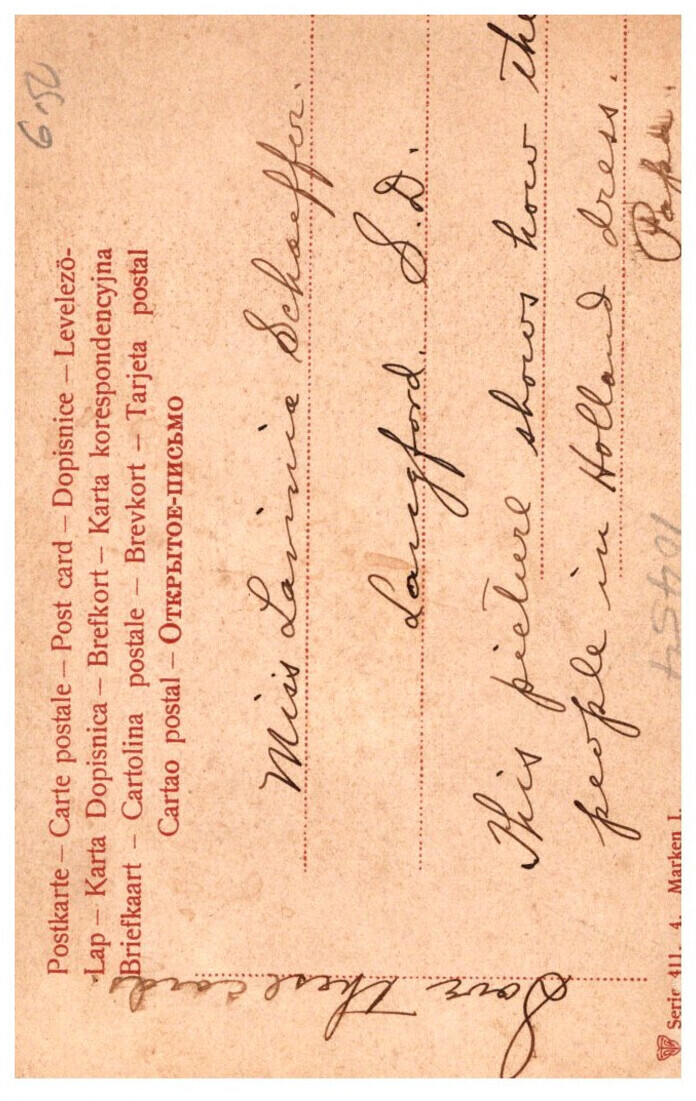 Postkarte – Carte postale – Post card – Dopisnice – Levelezö-
Lap – Karta Dopisnica – Brefkort – Karta korespondencyjna
Briefkaart – Cartolina postale – Brevkort – Tarjeta postal
Cartao postal – Открытое-письмо
Miss Lavinia Schaeffer.
Langford. S.D.
This picture shows how the
people in Holland dress.
Papa.
Save these cards
Serie 411. 4. Marken I.
10454